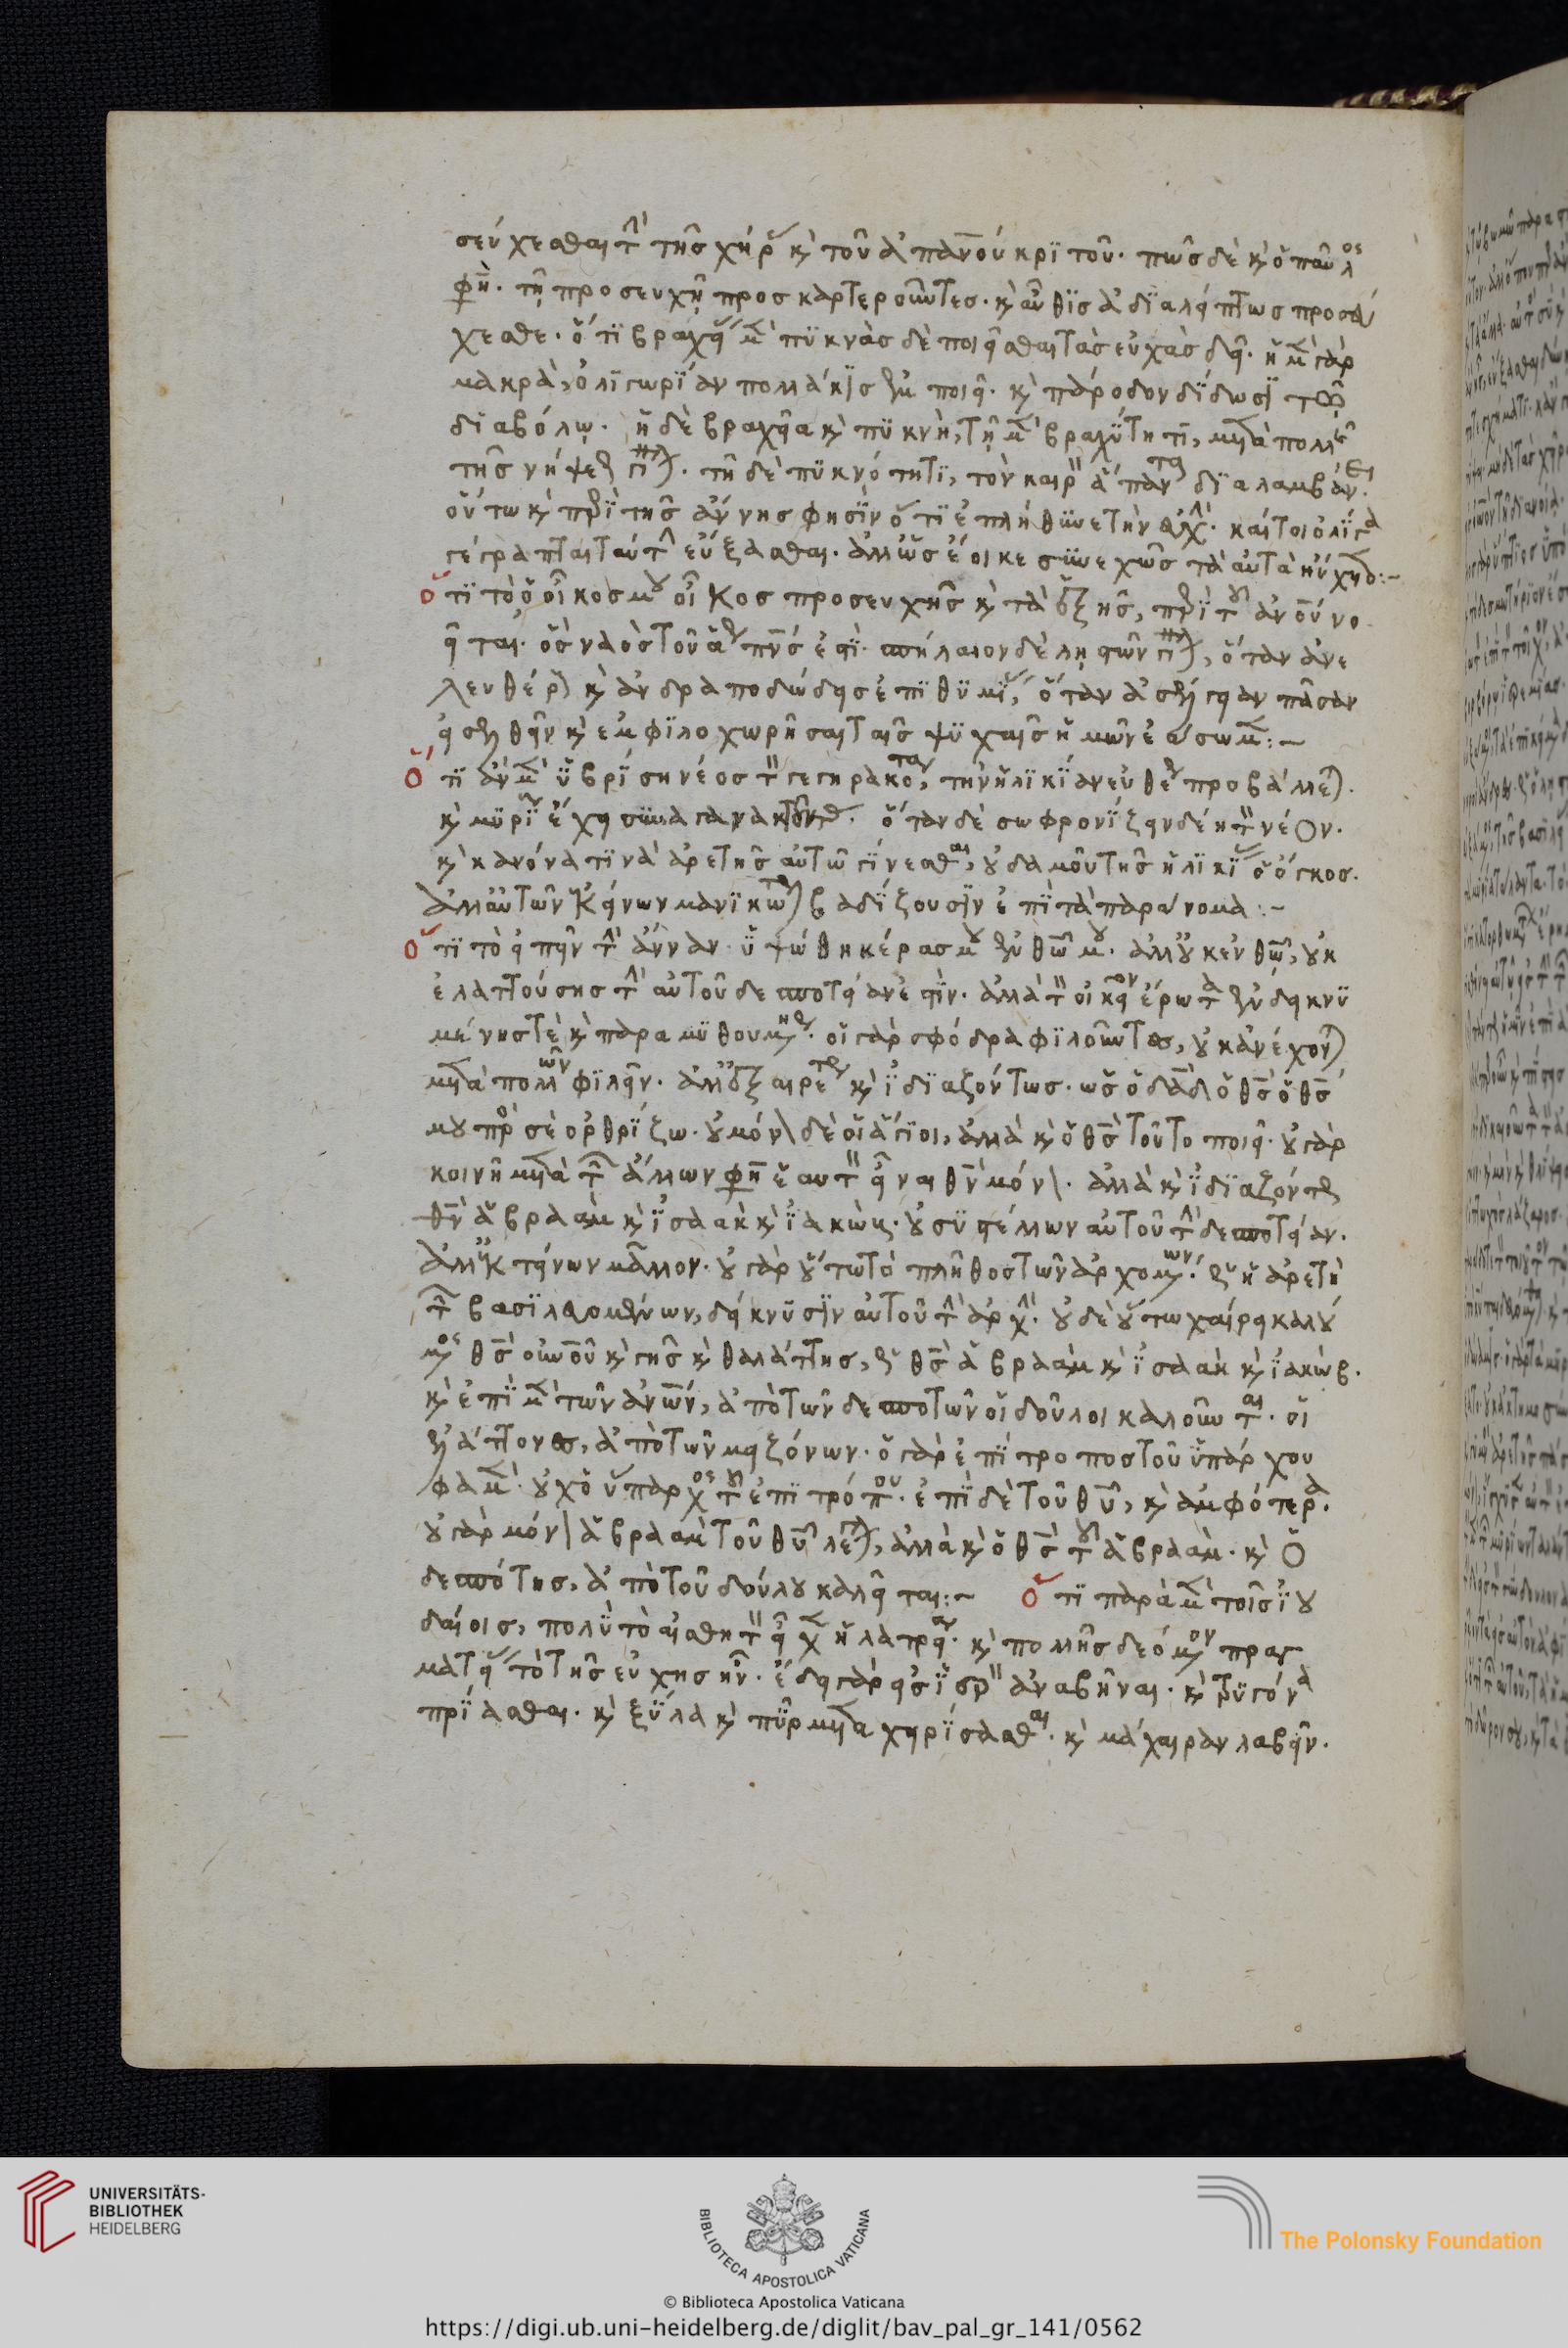 σεύχεσθαι τὴν τῆς χήρας καὶ τοῦ ἀπανου κριτοῦ. πῶς δὲ καὶ ὁ παῦλος
φη. τῇ προσευχῇ προσκαρτεροῦντες. καὶ αὖθις ἀδιαλείπτως προσεύ
χεσθε. ὅτι βραχείας μὲν πυκνὰς δὲ ποιεῖσθαι τὰς εὐχὰς δεῖ. ἡ μὲν γὰρ
μακρὰ, ὀλιγωρίαν πολλάκις ἐμποιεῖ. καὶ πάροδον δίδωσι τῷ
διαβόλῳ. ἡ δὲ βραχεῖα καὶ πυκνὴ, τῇ μὲν βραχύτητι, μετὰ πολλῆς
τῆς νήψεως γίνεται. τῇ δὲ πυκνότητι, τὸν καιρὸν ἅπαντα διαλαμβάνει.
οὕτω καὶ περὶ τῆς ἄννης φησὶν ὅτι ἐπλήθυνε τὴν εὐχήν. καίτοι ὀλίγα
γέγραπται ταύτην εὔξασθαι. ἀλλ' ὡς ἔοικε συνεχῶς τὰ αὐτὰ ηὔχετο:~
ὅτι τὸ ὁ οἶκός μου οἶκος προσευχῆς καὶ τὰ ἑξῆς, περὶ τοῦ ἀνου νο
εῖται. ὃς ναὸς τοῦ ἁγίου πνς ἐστί. σπήλαιον δὲ λῃστῶν γίνεται, ὅταν ἀνε
λευθέρους καὶ ἀνδραποδώδης ἐπιθυμίας, ὅταν ἀσέλγειαν πᾶσαν
εἰσελθεῖν καὶ ἐμφιλοχωρῆσαι ταῖς ψυχαῖς ἡμῶν ἐάσωμεν:~
ὅτι ἂν μὲν ὑβρίσῃ νέος τὸν γεγηρακότα, τὴν ἡλικίαν εὐθέως προβάλλεται.
καὶ μυρίους ἔχει συναγανακτοῦντας. ὅταν δὲ σωφρονίζειν δέῃ τὸν νέον.
καὶ κανόνα τινὰ ἀρετῆς αὐτῷ γίνεσθαι, οὐδαμοῦ τῆς ἡλικίας ὁ ὄγκος.
ἀλλ' αὐτῶν ἐκείνων μανικώτερον βαδίζουσιν ἐπὶ τὰ παράνομα:~
ὅτι τὸ εἰπεῖν τὴν ἄνναν ὑψώθη κέρας μου ἐν θω μου. ἀλλ' οὐκ ἐν θω, οὐκ
ἐλαττούσης τὴν αὐτοῦ δεσποτείαν ἐστίν. ἀλλὰ τὸν οἰκεῖον ἔρωτα ἐνδεικνυ
μένης τὲ καὶ παραμυθουμένης. οἱ γὰρ σφόδρα φιλοῦντες, οὐκ ἀνέχονται
μετὰ πολλῶν φιλεῖν. ἀλλ' ἐξαιρέτως καὶ ἰδιαζόντως. ὡς ὁ δαδ ὁ θς ὁ θς
μου πρὸς σὲ ὀρθρίζω. οὐ μόνον δὲ οἱ ἅγιοι, ἀλλὰ καὶ ὁ θς τοῦτο ποιεῖ. οὐ γὰρ
κοινῇ μετὰ τῶν ἄλλων φη ἑαυτὸν εἶναι θν μόνον. ἀλλὰ καὶ ἰδιαζόντως
θν ἀβραὰμ καὶ ἰσαὰκ καὶ ἰακώβ. οὐ συστέλλων αὐτοῦ τὴν δεσποτείαν.
ἀλλ' ἐκτείνων μᾶλλον. οὐ γὰρ οὕτω τὸ πλῆθος τῶν ἀρχομένων, ὡς ἡ ἀρετὴ
τῶν βασιλευομένων, δείκνυσιν αὐτοῦ τὴν ἀρχήν. οὐδὲ οὕτω χαίρει καλού
μενος θς οὐνου καὶ γῆς καὶ θαλάττης, ὡς θς ἀβραὰμ καὶ ἰσαὰκ καὶ ἰακώβ.
καὶ ἐπὶ μὲν τῶν ἀνων, ἀπὸ τῶν δεσποτῶν οἱ δοῦλοι καλοῦνται. οἱ
ἐλάττονες, ἀπὸ τῶν μειζόνων. ὁ γὰρ ἐπίτροπος τοῦ ὑπάρχου
φαμὲν. οὐχ ὁ ὕπαρχος τοῦ ἐπιτρόπου. ἐπὶ δὲ τοῦ θυ, καὶ ἀμφότερα.
οὐ γὰρ μόνον ἀβραὰμ τοῦ θυ λέγεται, ἀλλὰ καὶ ὁ θς τοῦ ἀβραάμ. καὶ ὁ
δεσπότης, ἀπὸ τοῦ δούλου καλεῖται:~ ὅτι παρὰ μὲν τοῖς ἰου
δαίοις, πολὺ τὸ αἰσθητὸν εἶχεν ἡ λατρεία. καὶ πολλῆς δεόμενον πραγ
ματείας τὸ τῆς εὐχῆς ἦν. ἔδει γὰρ εἰς ἱερὸν ἀναβῆναι. καὶ τρυγόνα
πρίασθαι. καὶ ξύλα καὶ πῦρ μεταχειρίσασθαι. καὶ μάχαιραν λαβεῖν.
UNIVERSITÄTS-
BIBLIOTHEK
HEIDELBERG
BIBLIOTECA APOSTOLICA VATICANA
The Polonsky Foundation
© Biblioteca Apostolica Vaticana
https://digi.ub.uni-heidelberg.de/diglit/bav_pal_gr_141/0562